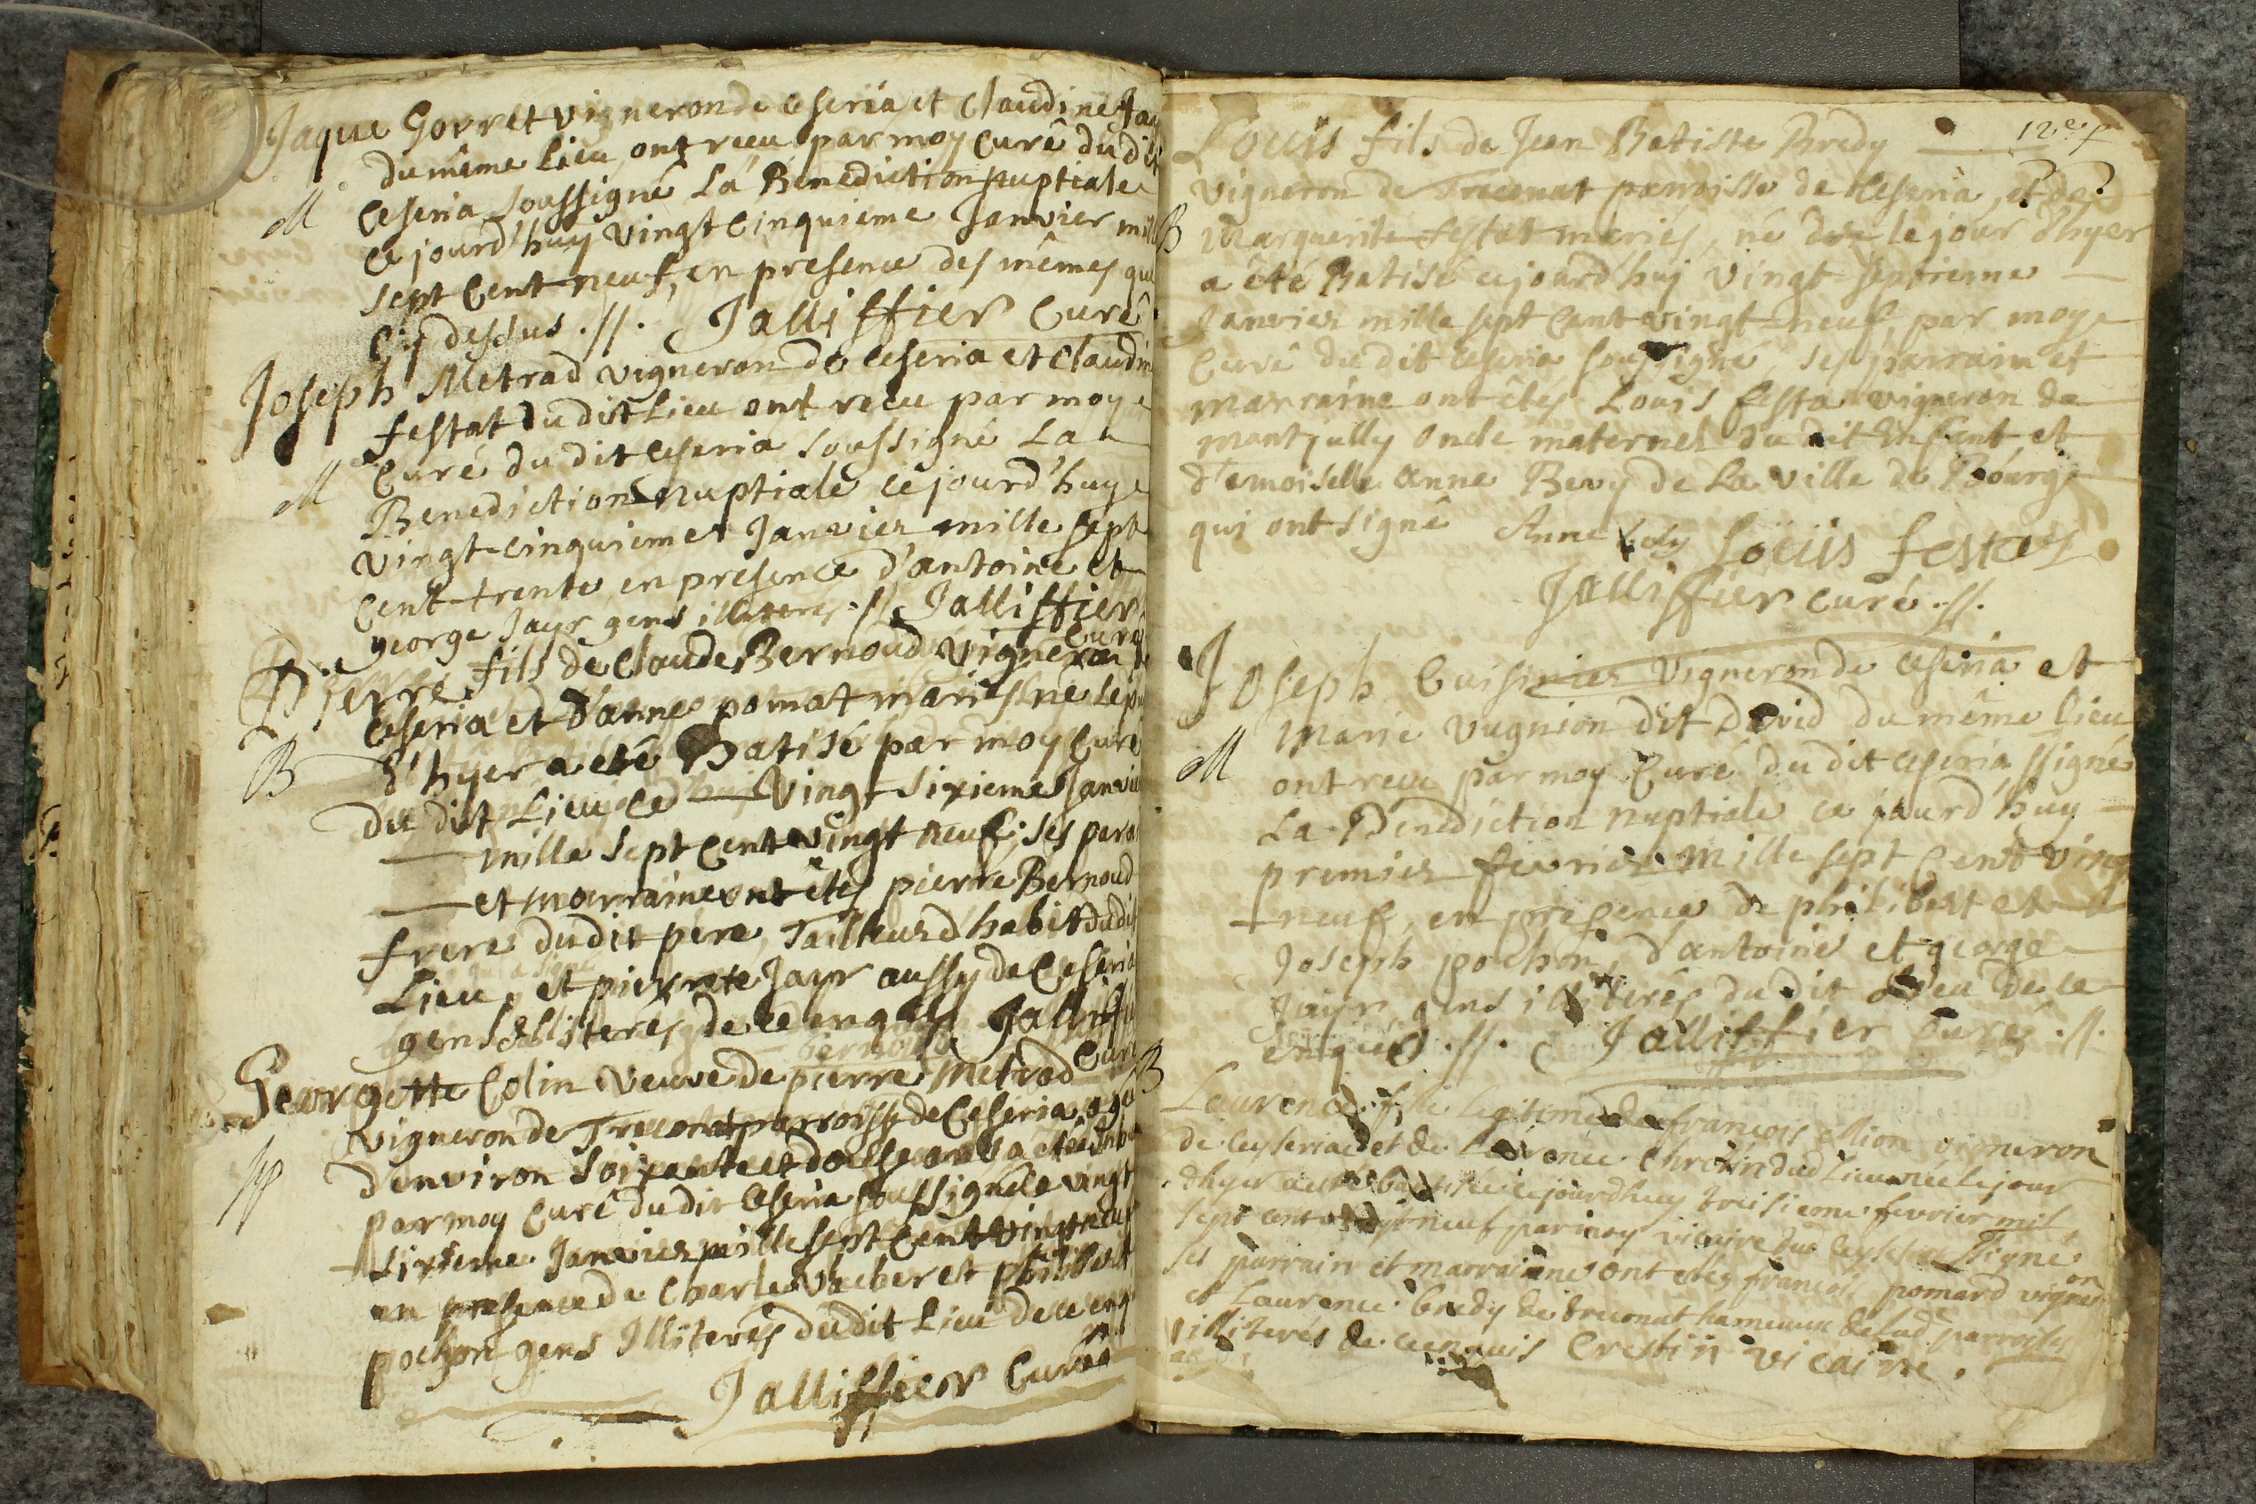 Jaque Gorret vigneron de Ceseria et Claudine
du même lieu ont receu par moy Curé du dit
M
Ceseria soussigné La Benediction nuptiale
ce jourd'huy vingt cinquieme Janvier mill
sept Cent neuf, en presence des mêmes que
Cy dessus .//. Jalliffier Curé
Joseph Metrad vigneron de Ceseria et Claudin
festat du dit lieu ont receu par moy
M
Curé du dit Ceseria soussigné La
Benediction nuptiale ce jourd'huy
vingt-cinquieme Janvier mille sept
Cent-trente en presence d'antoine et
george Jayr gens illiterés .// Jalliffier
Curé
Pierre fils de Claude Bernoud vigneron de
Ceseria et d'anne pomat mariés né le jour
B
d'hyer a eté Batisé par moy Curé
du dit Lieu ce vingt-sixieme Janvie
mille sept Cent vingt neuf; ses para
et marraine ont êtés pierre Bernoud
frere dudit pere, Tailleur d'habit du dit
qui a signé
Lieu, et pierrete Jayr aussy de Ceseria
gens illiterés de ce enquis Jalliffier
bernoud Curé
Georgette Colin veuve de pierre Metrad
vigneron de Treconat parroisse de Ceseria, agée
d'environ soixante et douse ans a été inhu
par moy Curé du dit Ceseria soussigné le vingt
sixieme Janvier mille sept Cent vingt neuf
en presence de Charle Vacher et philibert
pochon gens Illiterés du dit Lieu de ce enq
Jalliffier Curé
12e p
Louis fils de Jean Batiste Bredy
vigneron de Treconat parroisse de Ceseria, et de
B
Marguerite festat mariés, né le jour d'hyer
a été Batisé ce jourd'huy vingt-septieme
Janvier mille sept Cent vingt-neuf, par moy
Curé du dit Ceseria soussigné, ses parrain et
marraine ont êtés Louis festa vigneron de
montjully oncle maternel du dit Enfent et
d'emoiselle anne Bevy de La ville de Bourg
qui ont signé Anne Loüis festas
Jalliffier curé .//.
Joseph Cuisinier vigneron de Ceseria et
Marie vugnion dit David du même lieu
M
ont receu par moy Curé du dit Ceseria ssigné
La Benediction nuptiale ce jourd'huy
premier fevrier mille sept Cent ving
neuf, en presence de philibert et
Joseph pochon, d'antoine et george
Jayr, gens illiterés du dit Lieu de ce
enquis .//. Jalliffier Curé .//.
B
Laurence fille legitime de françois Mion vigneron
de Ceyseria et de Laurence Chrétin dud lieu née le jour
d'hyer a eté batisée ce jourdhuy treisieme fevrier mil
sept cent vingt neuf par moy vicaire dud Ceyseria ssigné
ses parrain et marraine ont etes françois pomard vigneron
et Laurence bredy de treconat hameaux de lad. parroisse
illiterés de ce enquis Crestin vicaire.